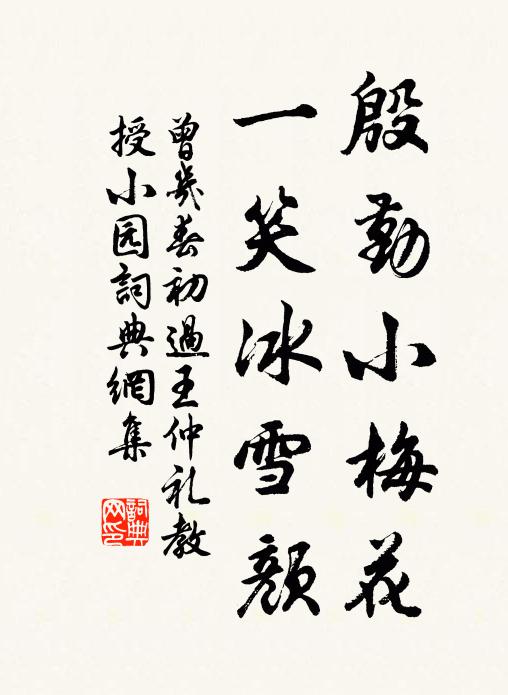 殷勤小梅花
一笑冰雪顔
曾幾春初過王仲礼教
授小园詞典網集
詞典网印